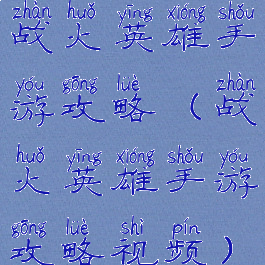 zhàn huǒ yīng xióng shǒu
战火英雄手
yóu gōng lüè zhàn
游攻略(战
huǒ yīng xióng shǒu yóu
火英雄手游
gōng lüè shì pín
攻略视频)